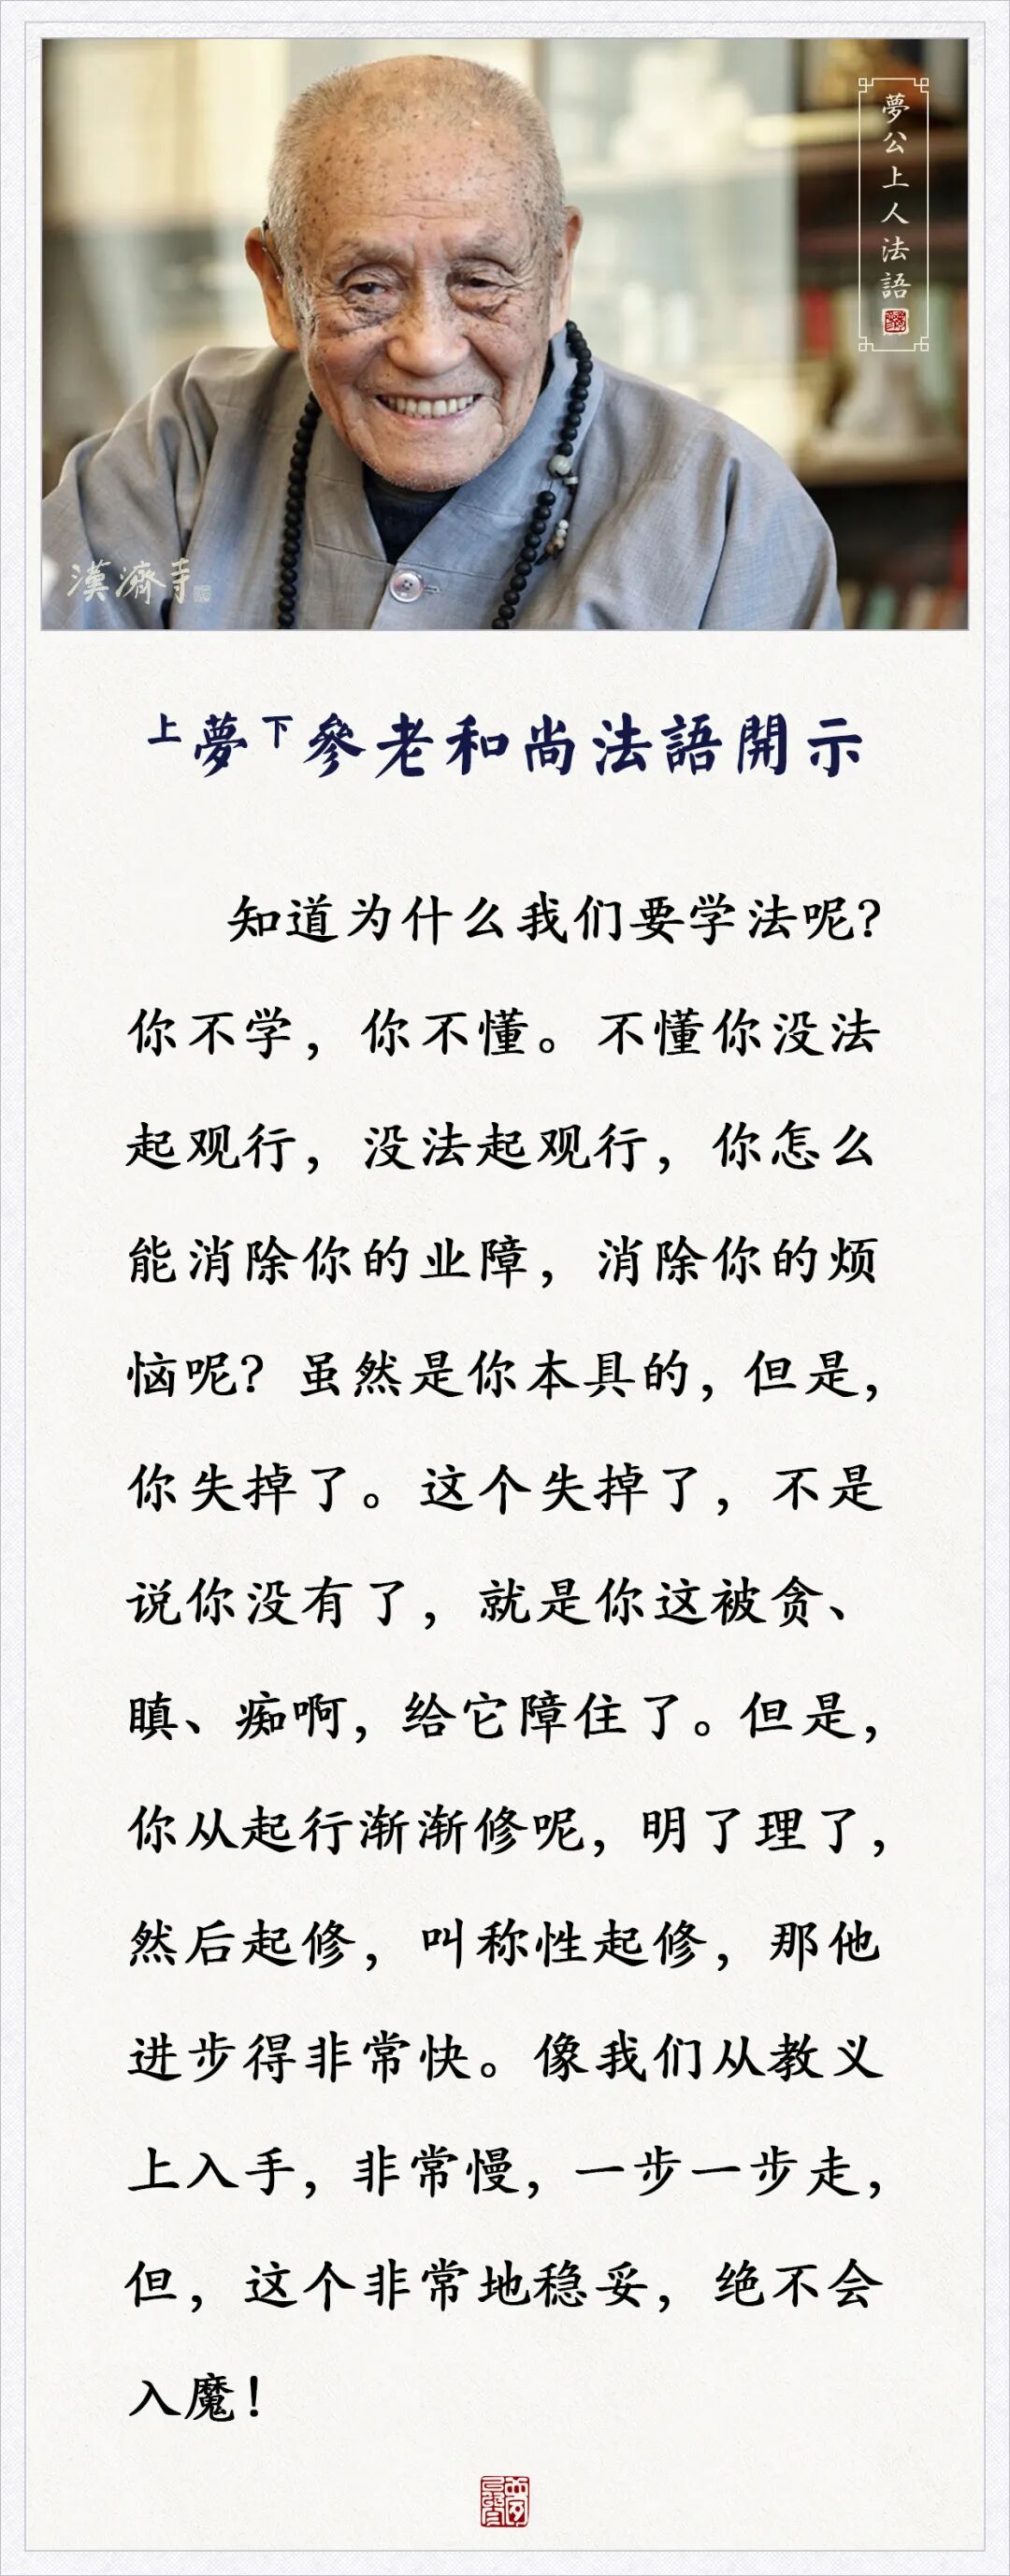 夢公上人法語
漢濟寺
上夢下參老和尚法語開示
知道为什么我们要学法呢?
你不学，你不懂。不懂你没法
起观行，没法起观行，你怎么
能消除你的业障，消除你的烦
恼呢?虽然是你本具的，但是，
你失掉了。这个失掉了，不是
说你没有了，就是你这被贪、
瞋、痴啊，给它障住了。但是，
你从起行渐渐修呢，明了理了，
然后起修，叫称性起修，那他
进步得非常快。像我们从教义
上入手，非常慢，一步一步走，
但，这个非常地稳妥，绝不会
入魔！